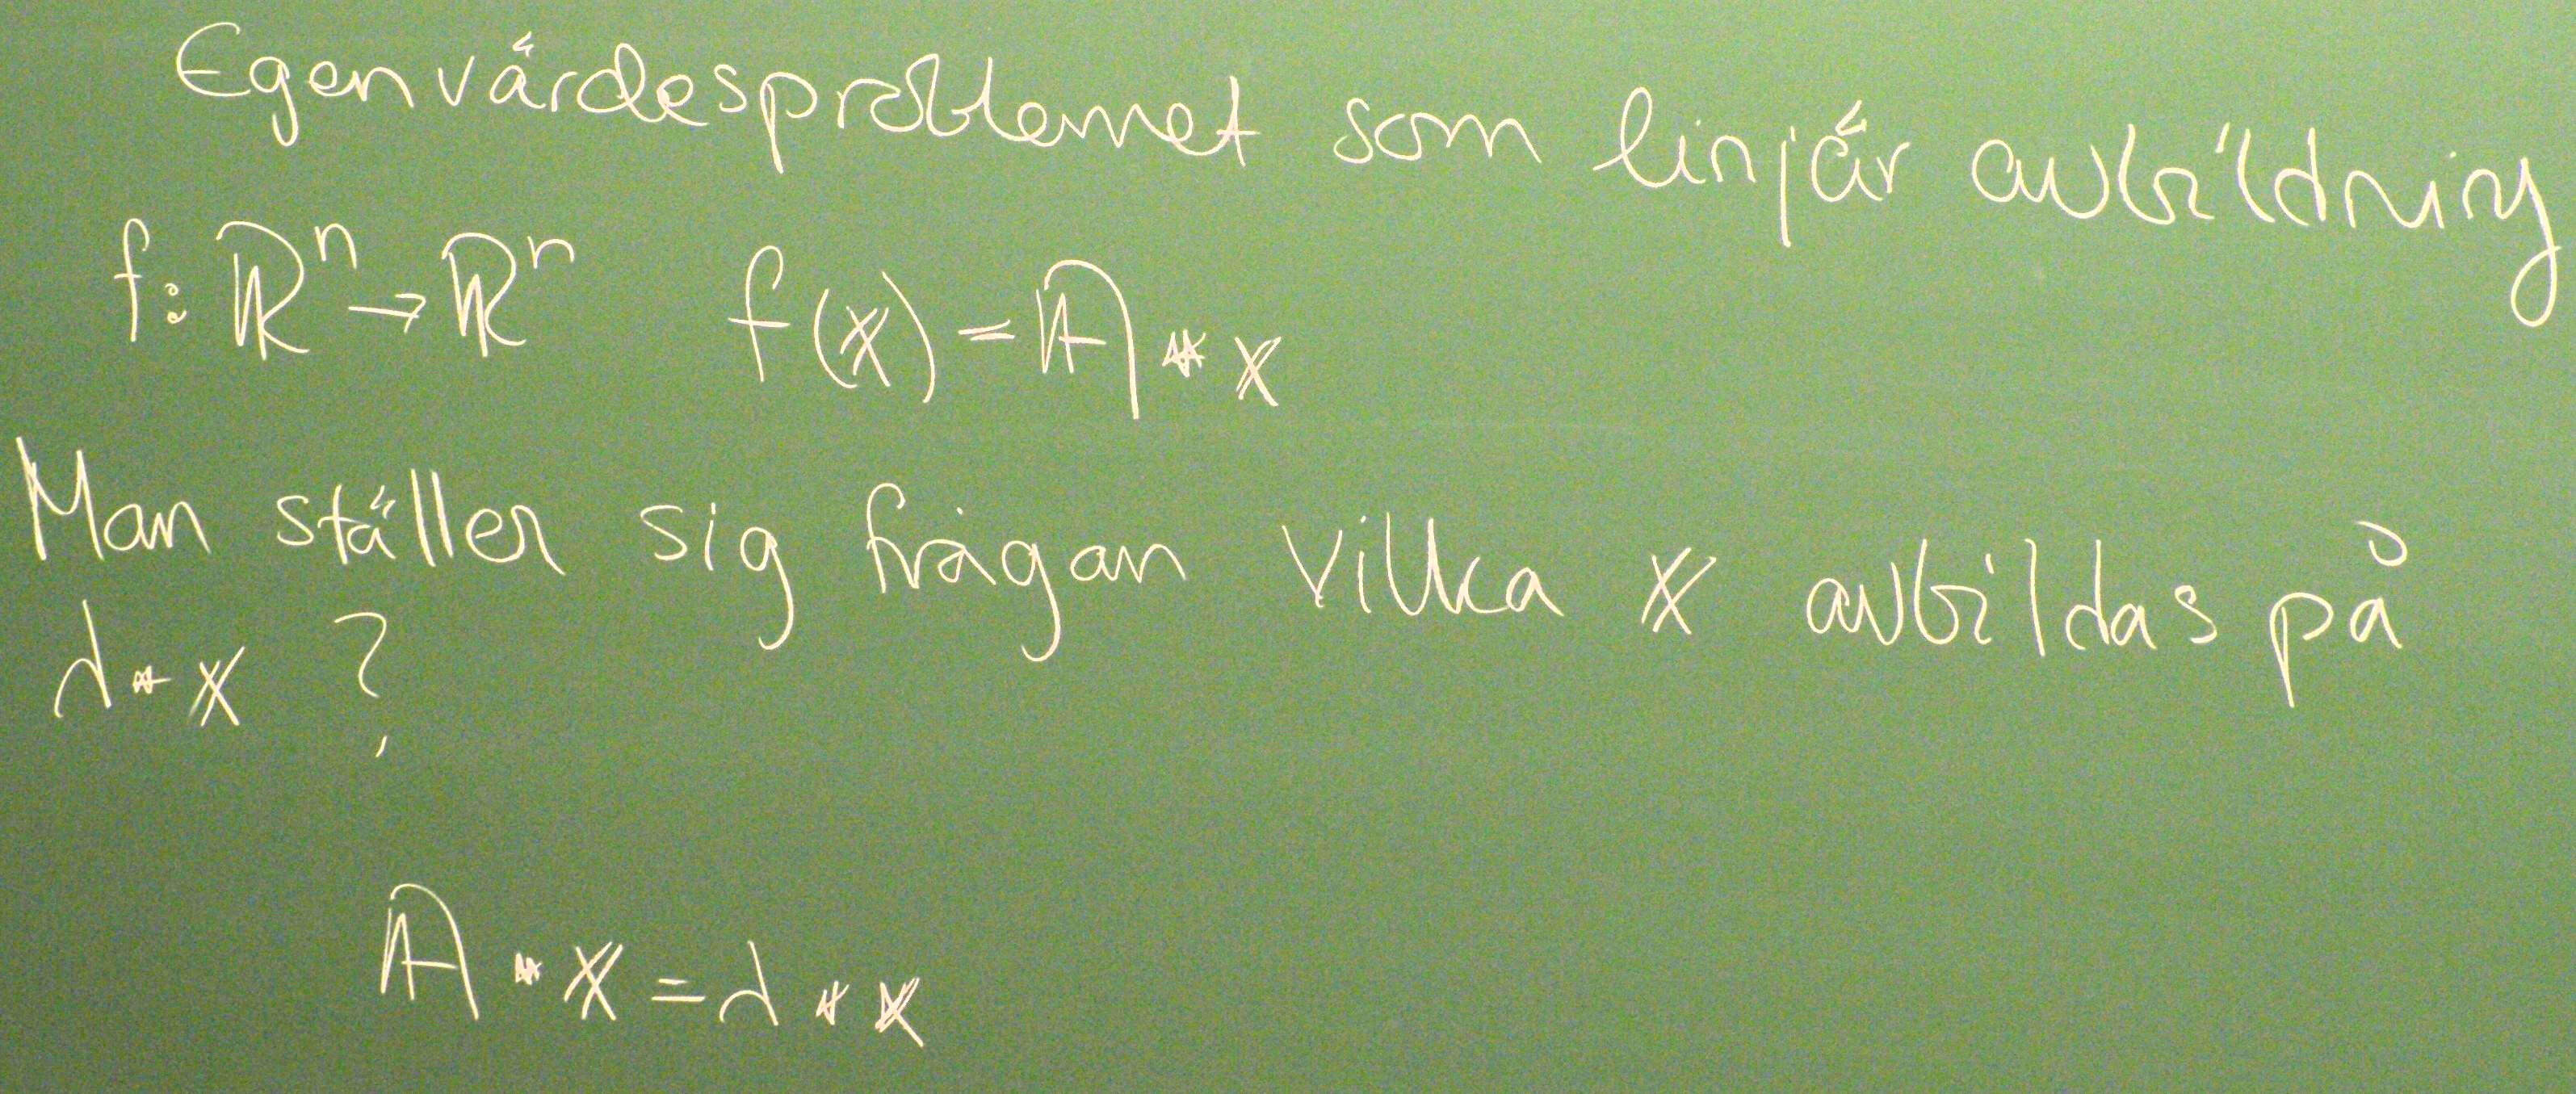 Egenvärdesproblemet som linjär avbildning
f: ℝⁿ → ℝⁿ f(𝕩) = 𝔸 * 𝕩
Man ställer sig frågan vilka 𝕩 avbildas på
λ * 𝕩 ?
𝔸 * 𝕩 = λ * 𝕩